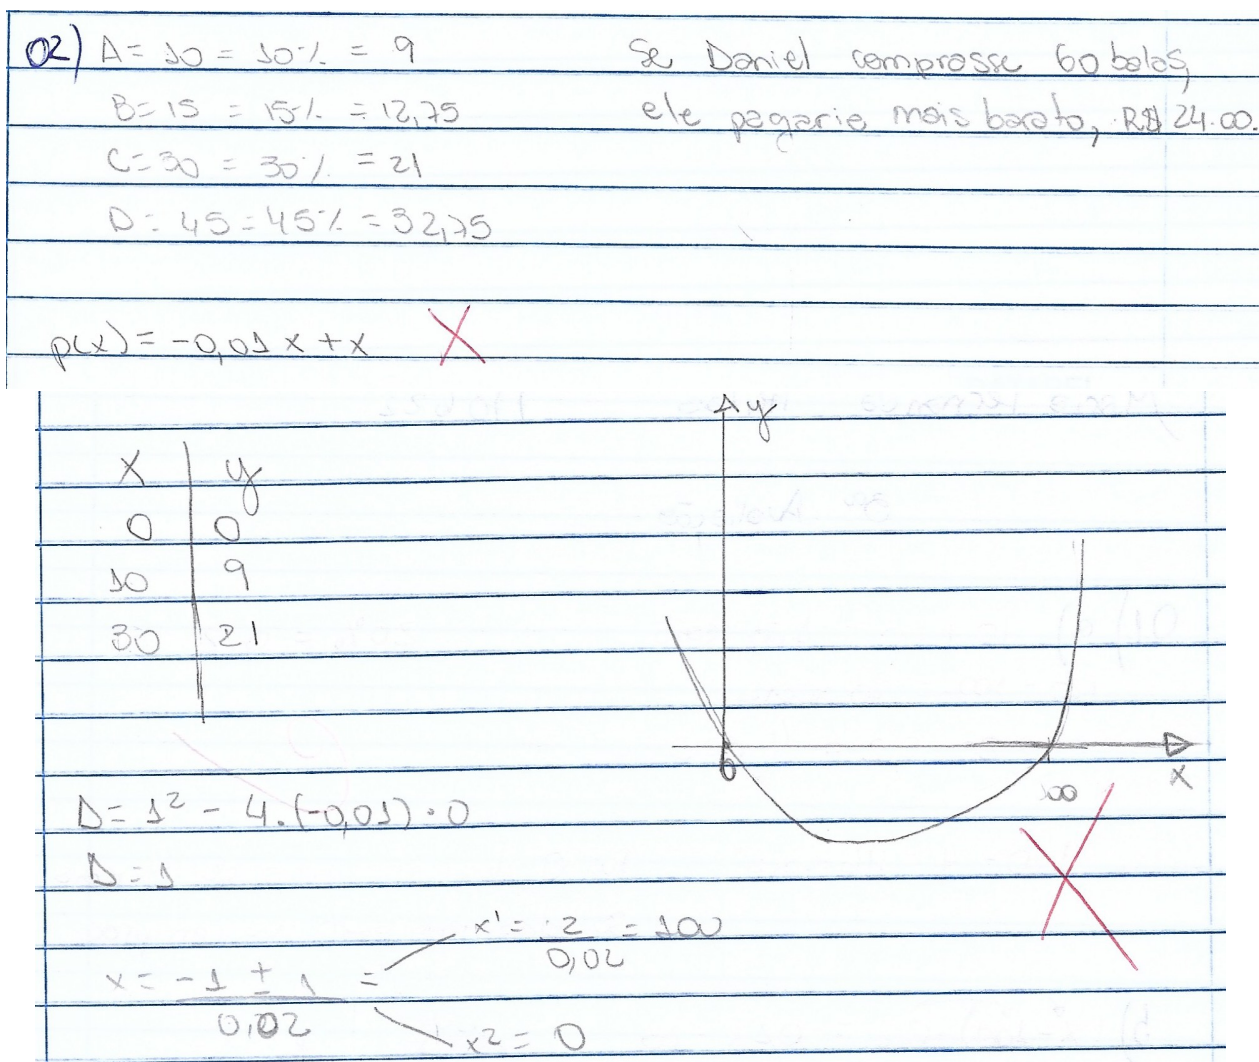 02) A = 10 = 10% = 9
B = 15 = 15% = 12,75
C = 30 = 30% = 21
D = 45 = 45% = 32,75
Se Daniel comprasse 60 balas,
ele pagaria mais barato, R$ 24.00.
p(x) = -0,01x + x
x y
0 0
10 9
30 21
y
0
100
x
Δ = 1² - 4.(-0,01).0
Δ = 1
x = -1 ± 1 =
0,02
x¹ = -2 = 100
0,02
x² = 0